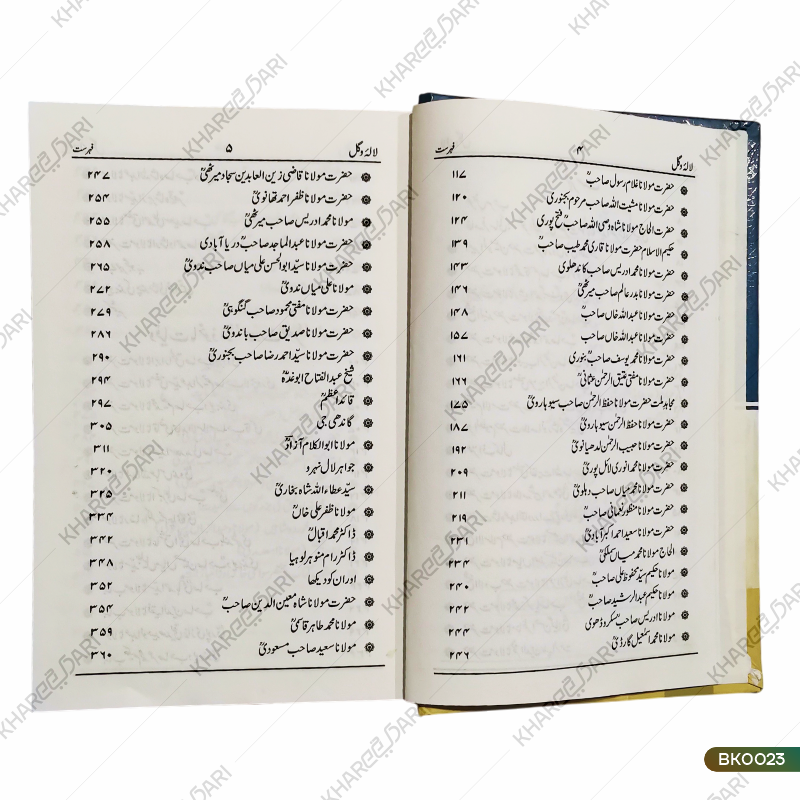 لالۂ وگل ۴ فہرست
حضرت مولانا غلام رسول صاحبؒ ۱۱۷
حضرت مولانا مشیت اللہ صاحب مرحوم بجنوری ۱۲۰
حضرت الحاج مولانا شاہ وصی اللہ صاحبؒ فتح پوری ۱۲۴
حکیم الاسلام حضرت مولانا قاری محمد طیب صاحبؒ ۱۳۹
حضرت مولانا محمد ادریس صاحب کاندھلوی ۱۴۳
حضرت مولانا بدر عالم صاحب میرٹھیؒ ۱۴۶
حضرت مولانا عبداللہ خاں صاحبؒ ۱۴۸
حضرت مولانا عبداللہ خاں صاحب ۱۵۷
حضرت مولانا محمد یوسف صاحبؒ بنوری ۱۶۱
حضرت مولانا مفتی عتیق الرحمٰن عثمانیؒ ۱۶۶
مجاہد ملت حضرت مولانا حفظ الرحمٰن صاحب سیوہارویؒ ۱۷۵
حضرت مولانا حفظ الرحمٰن سیوہارویؒ ۱۸۷
حضرت مولانا حبیب الرحمٰن لدھیانویؒ ۱۹۲
حضرت مولانا محمد انوری لائل پوریؒ ۲۰۹
حضرت مولانا محمد میاں صاحب دہلویؒ ۲۱۱
حضرت مولانا منظور نعمانی صاحبؒ ۲۱۹
حضرت مولانا سعید احمد اکبرآبادیؒ ۲۳۱
الحاج مولانا محمد میاں سملکیؒ ۲۳۴
مولانا حکیم سیّد محفوظ علی صاحبؒ ۲۴۰
مولانا حکیم عبدالرشید صاحبؒ ۲۴۲
مولانا ادریس صاحبؒ سکروڈھوی ۲۴۴
مولانا محمد اسمٰعیل گارڈیؒ ۲۴۶
لالۂ وگل ۵ فہرست
حضرت مولانا قاضی زین العابدین سجاد میرٹھیؒ ۲۴۷
حضرت مولانا ظفر احمد تھانویؒ ۲۵۴
مولانا محمد ادریس صاحب میرٹھیؒ ۲۵۵
حضرت مولانا عبدالماجد صاحبؒ دریاآبادی ۲۵۸
حضرت مولانا سیّد ابوالحسن علی میاں صاحب ندویؒ ۲۶۵
مولانا علی میاں ندویؒ ۲۷۲
حضرت مولانا مفتی محمود صاحب گنگوہیؒ ۲۷۹
حضرت مولانا صدیق صاحب باندویؒ ۲۸۶
حضرت مولانا سیّد احمد رضا صاحب بجنوریؒ ۲۹۰
شیخ عبدالفتاح ابوغدہؒ ۲۹۴
قائد اعظمؒ ۲۹۷
گاندھی جی ۳۰۵
مولانا ابوالکلام آزادؒ ۳۱۱
جواہر لال نہرو ۳۲۰
سیّد عطاء اللہ شاہ بخاریؒ ۳۲۵
مولانا ظفر علی خاںؒ ۳۳۴
ڈاکٹر محمد اقبالؒ ۳۴۲
ڈاکٹر رام منوہر لوہیا ۳۴۸
اور ان کو دیکھا ۳۵۲
حضرت مولانا شاہ معین الدین صاحبؒ ۳۵۴
مولانا محمد طاہر قاسمیؒ ۳۵۹
مولانا سعید صاحب مسعودیؒ ۳۶۰
BK0023